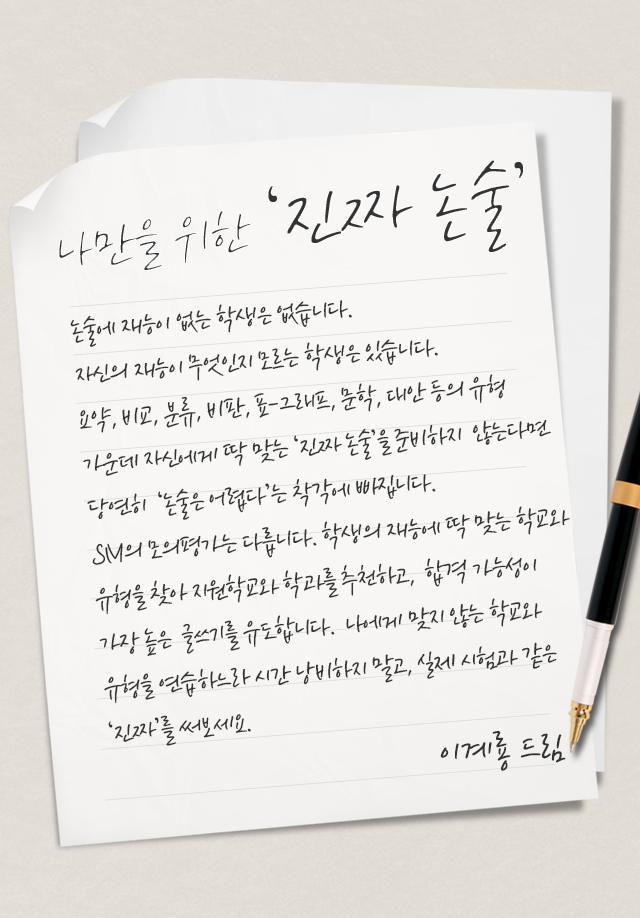 나만을 위한 ‘진짜 논술’
논술에 재능이 없는 학생은 없습니다.
자신의 재능이 무엇인지 모르는 학생은 있습니다.
요약, 비교, 분류, 비판, 표-그래프, 문학, 대안 등의 유형
가운데 자신에게 딱 맞는 ‘진짜 논술’을 준비하지 않는다면
당연히 ‘논술은 어렵다’는 착각에 빠집니다.
SM의 모의평가는 다릅니다. 학생의 재능에 딱 맞는 학교와
유형을 찾아 지원학교와 학과를 추천하고, 합격 가능성이
가장 높은 글쓰기를 유도합니다. 나에게 맞지 않는 학교와
유형을 연습하느라 시간 낭비하지 말고, 실제 시험과 같은
‘진짜’를 써보세요.
이계룡 드림